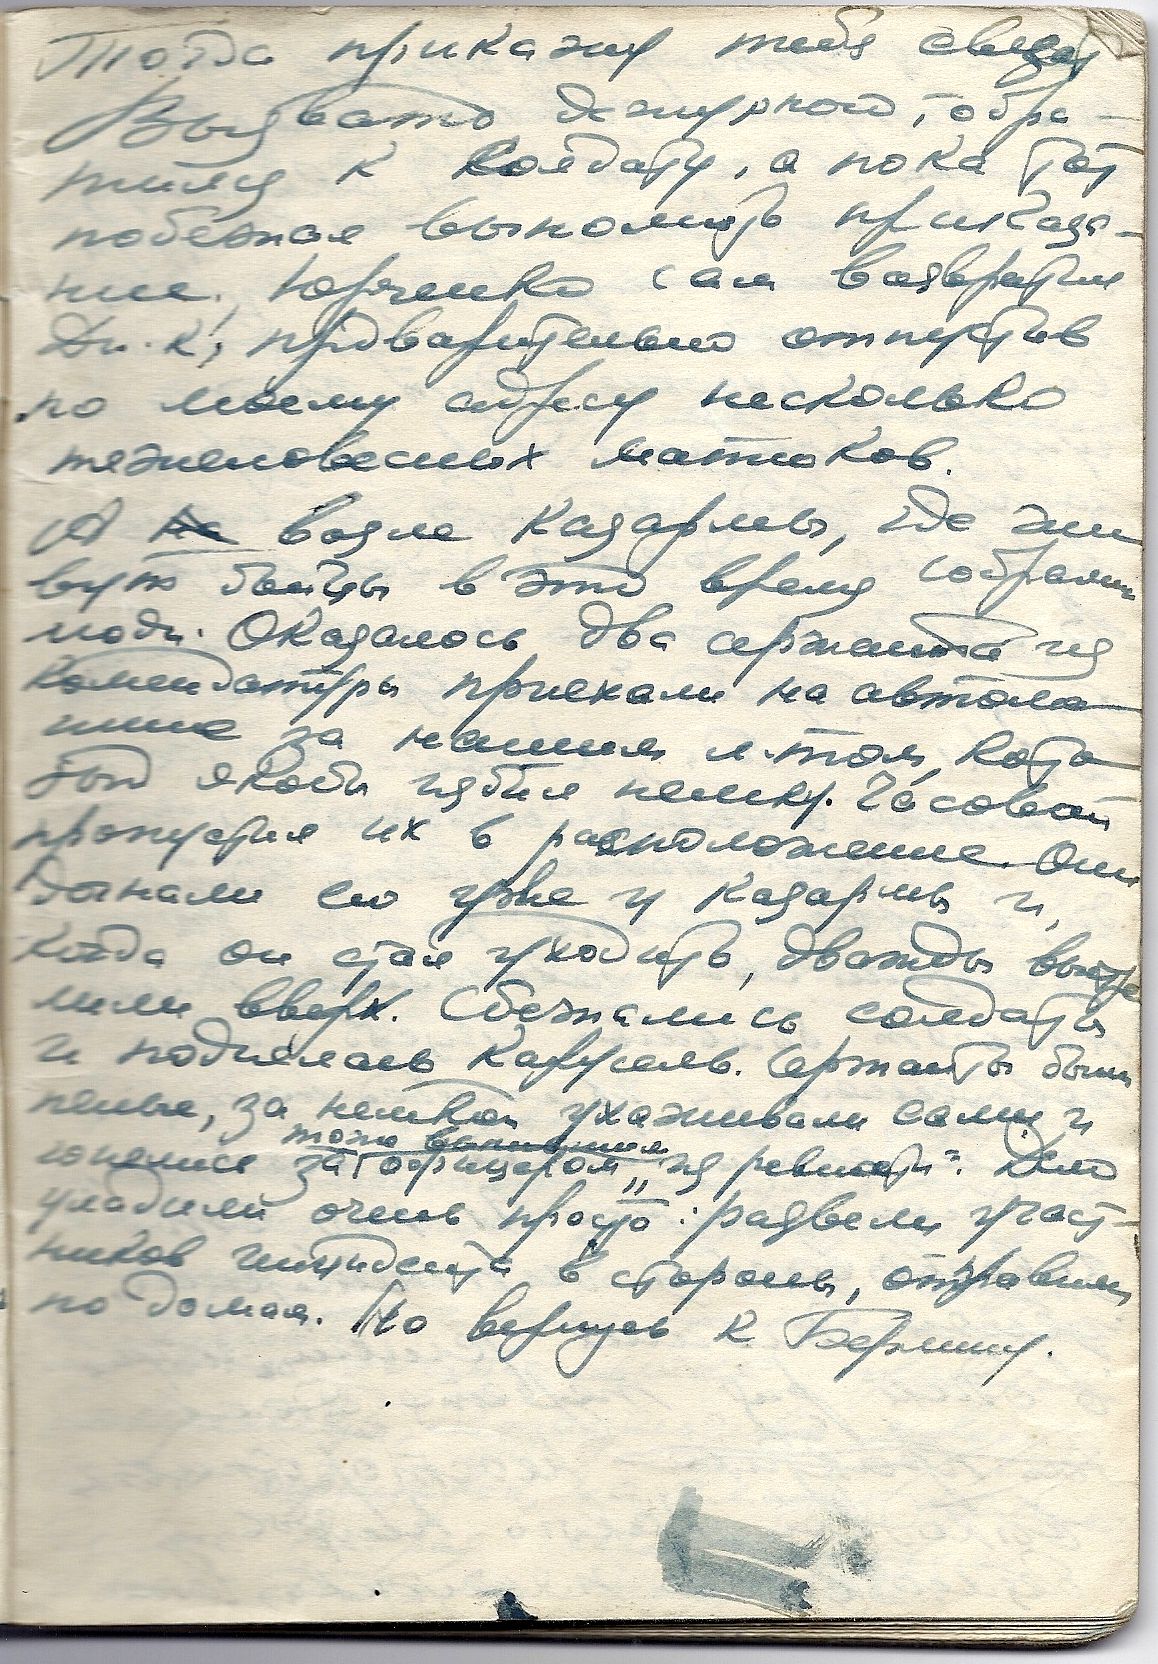 Тогда прикажу тебя
Вызвать дежурного, обра-
тился к солдату, а пока тот
побежал выполнять приказа-
ние, Юрченко сам возвратил
Дм. К, предварительно отпустив
по моему адресу несколько
тяжеловесных матюков.
А возле казармы, где жи
вут бойцы в это время собрались
люди. Оказалось два сержанта из
комендатуры приехали на автома
шине за нашим л-том, кото
рый якобы избил немку. Часовой
пропустил их в расположение. Они
догнали его уже у казармы и,
когда он стал уходить, дважды выстре
лили вверх. Сбежались солдаты
и поднялась карусель. Сержанты были
пьяные, за немкой ухаживали сами и
тоже выпившим
гонялись за офицером „из ревности". Дело
уладили очень просто: развели участ-
ников инцидента в стороны, отправили
по домам. Но вернусь к Берлину.